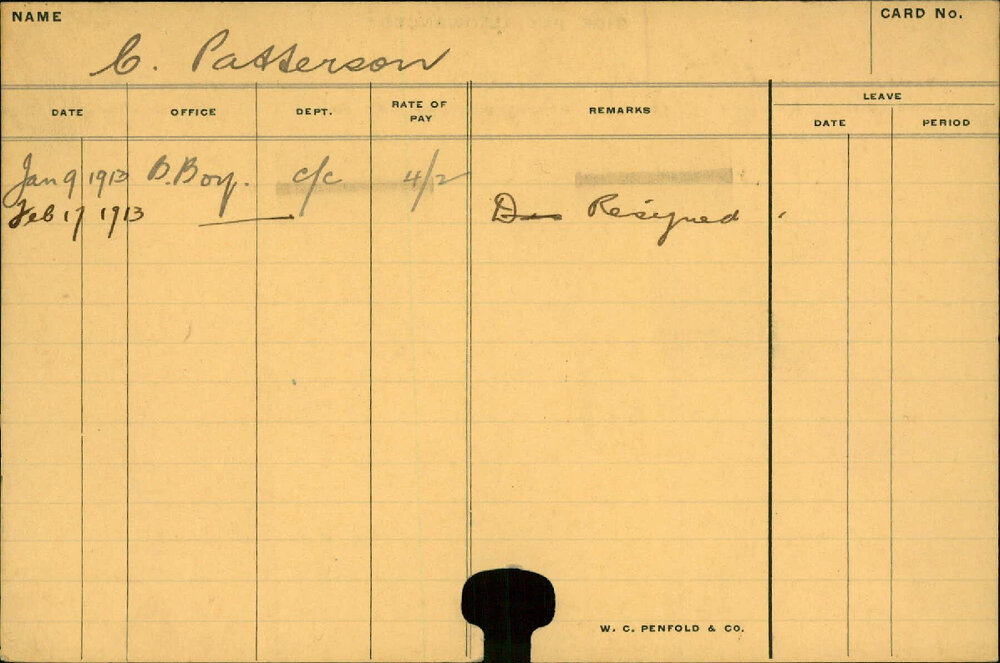 NAME
C. Patterson
CARD No.
DATE OFFICE DEPT. RATE OF PAY REMARKS LEAVE
DATE PERIOD
Jan 9 1913 B.Boy. c/c 4/2
Feb 17 1913 Resigned
W. C. PENFOLD & CO.